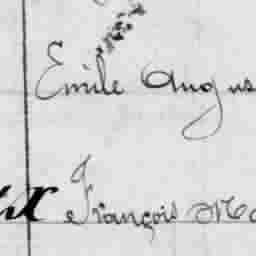 Emile Augus
François Ma